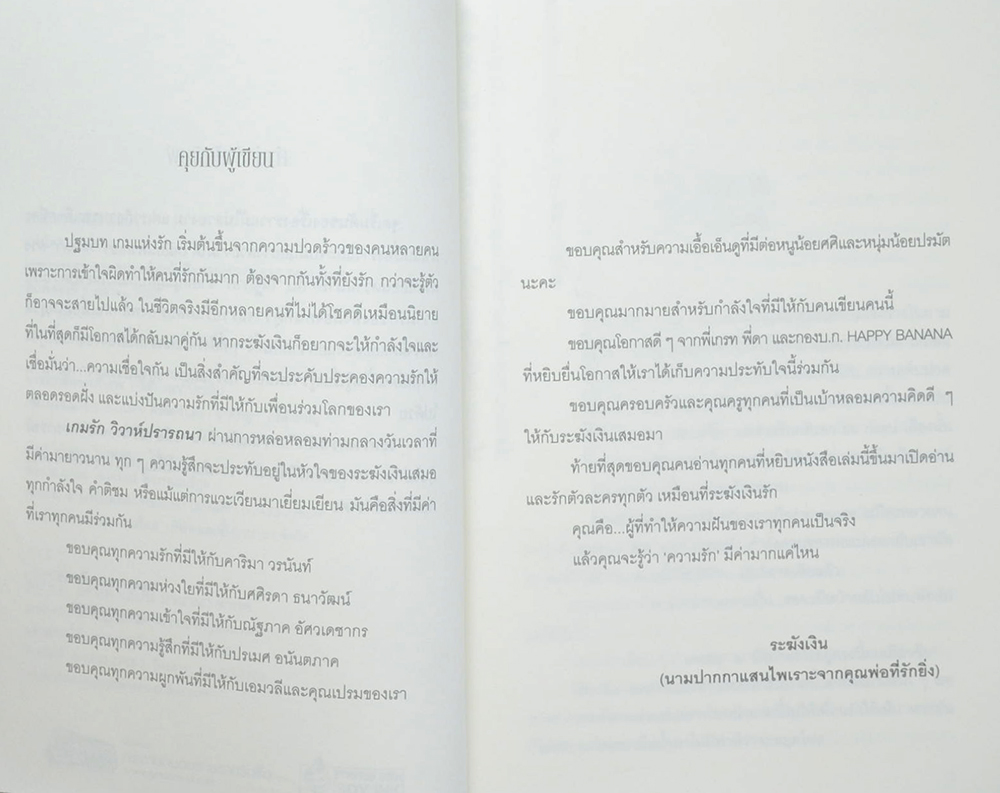 คุยกับผู้เขียน
ปฐมบท เกมแห่งรัก เริ่มต้นขึ้นจากความปวดร้าวของคนหลายคน
เพราะการเข้าใจผิดทำให้คนที่รักกันมาก ต้องจากกันทั้งที่ยังรัก กว่าจะรู้ตัว
ก็อาจจะสายไปแล้ว ในชีวิตจริงมีอีกหลายคนที่ไม่ได้โชคดีเหมือนนิยาย
ที่ในที่สุดก็มีโอกาสได้กลับมาคู่กัน หากระฆังเงินก็อยากจะให้กำลังใจและ
เชื่อมั่นว่า...ความเชื่อใจกัน เป็นสิ่งสำคัญที่จะประคับประคองความรักให้
ตลอดรอดฝั่ง และแบ่งปันความรักที่มีให้กับเพื่อนร่วมโลกของเรา
เกมรัก วิวาห์ปรารถนา ผ่านการหล่อหลอมท่ามกลางวันเวลาที่
มีค่ามายาวนาน ทุก ๆ ความรู้สึกจะประทับอยู่ในหัวใจของระฆังเงินเสมอ
ทุกกำลังใจ คำติชม หรือแม้แต่การแวะเวียนมาเยี่ยมเยียน มันคือสิ่งที่มีค่า
ที่เราทุกคนมีร่วมกัน
ขอบคุณทุกความรักที่มีให้กับคาริมา วรนันท์
ขอบคุณทุกความห่วงใยที่มีให้กับศศิรดา ธนาวัฒน์
ขอบคุณทุกความเข้าใจที่มีให้กับณัฐภาค อัศวเดชากร
ขอบคุณทุกความรู้สึกที่มีให้กับปรเมศ อนันตภาค
ขอบคุณทุกความผูกพันที่มีให้กับเอมวลีและคุณเปรมของเรา
ขอบคุณสำหรับความเอื้อเอ็นดูที่มีต่อหนูน้อยศศิและหนุ่มน้อยปรมัต
นะคะ
ขอบคุณมากมายสำหรับกำลังใจที่มีให้กับคนเขียนคนนี้
ขอบคุณโอกาสดี ๆ จากพี่เกรท พี่ดา และกองบ.ก. HAPPY BANANA
ที่หยิบยื่นโอกาสให้เราได้เก็บความประทับใจนี้ร่วมกัน
ขอบคุณครอบครัวและคุณครูทุกคนที่เป็นเบ้าหลอมความคิดดี ๆ
ให้กับระฆังเงินเสมอมา
ท้ายที่สุดขอบคุณคนอ่านทุกคนที่หยิบหนังสือเล่มนี้ขึ้นมาเปิดอ่าน
และรักตัวละครทุกตัว เหมือนที่ระฆังเงินรัก
คุณคือ...ผู้ที่ทำให้ความฝันของเราทุกคนเป็นจริง
แล้วคุณจะรู้ว่า ‘ความรัก’ มีค่ามากแค่ไหน
ระฆังเงิน
(นามปากกาแสนไพเราะจากคุณพ่อที่รักยิ่ง)